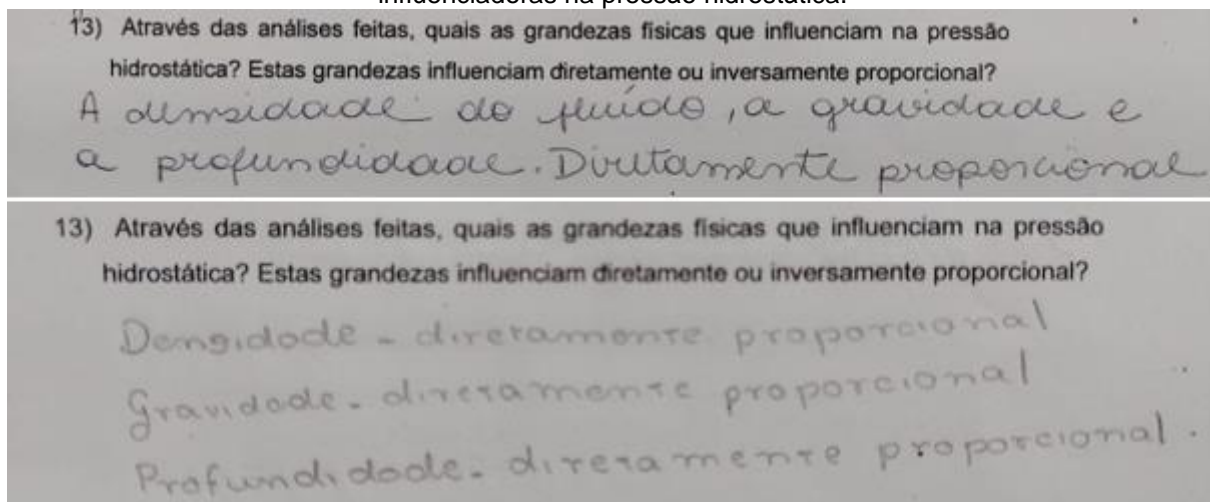 influenciadoras na pressão hidrostática.
13) Através das análises feitas, quais as grandezas físicas que influenciam na pressão
hidrostática? Estas grandezas influenciam diretamente ou inversamente proporcional?
A densidade do fluído, a gravidade e
a profundidade. Diretamente proporcional
13) Através das análises feitas, quais as grandezas físicas que influenciam na pressão
hidrostática? Estas grandezas influenciam diretamente ou inversamente proporcional?
Densidade - diretamente proporcional
Gravidade - diretamente proporcional
Profundidade - diretamente proporcional.